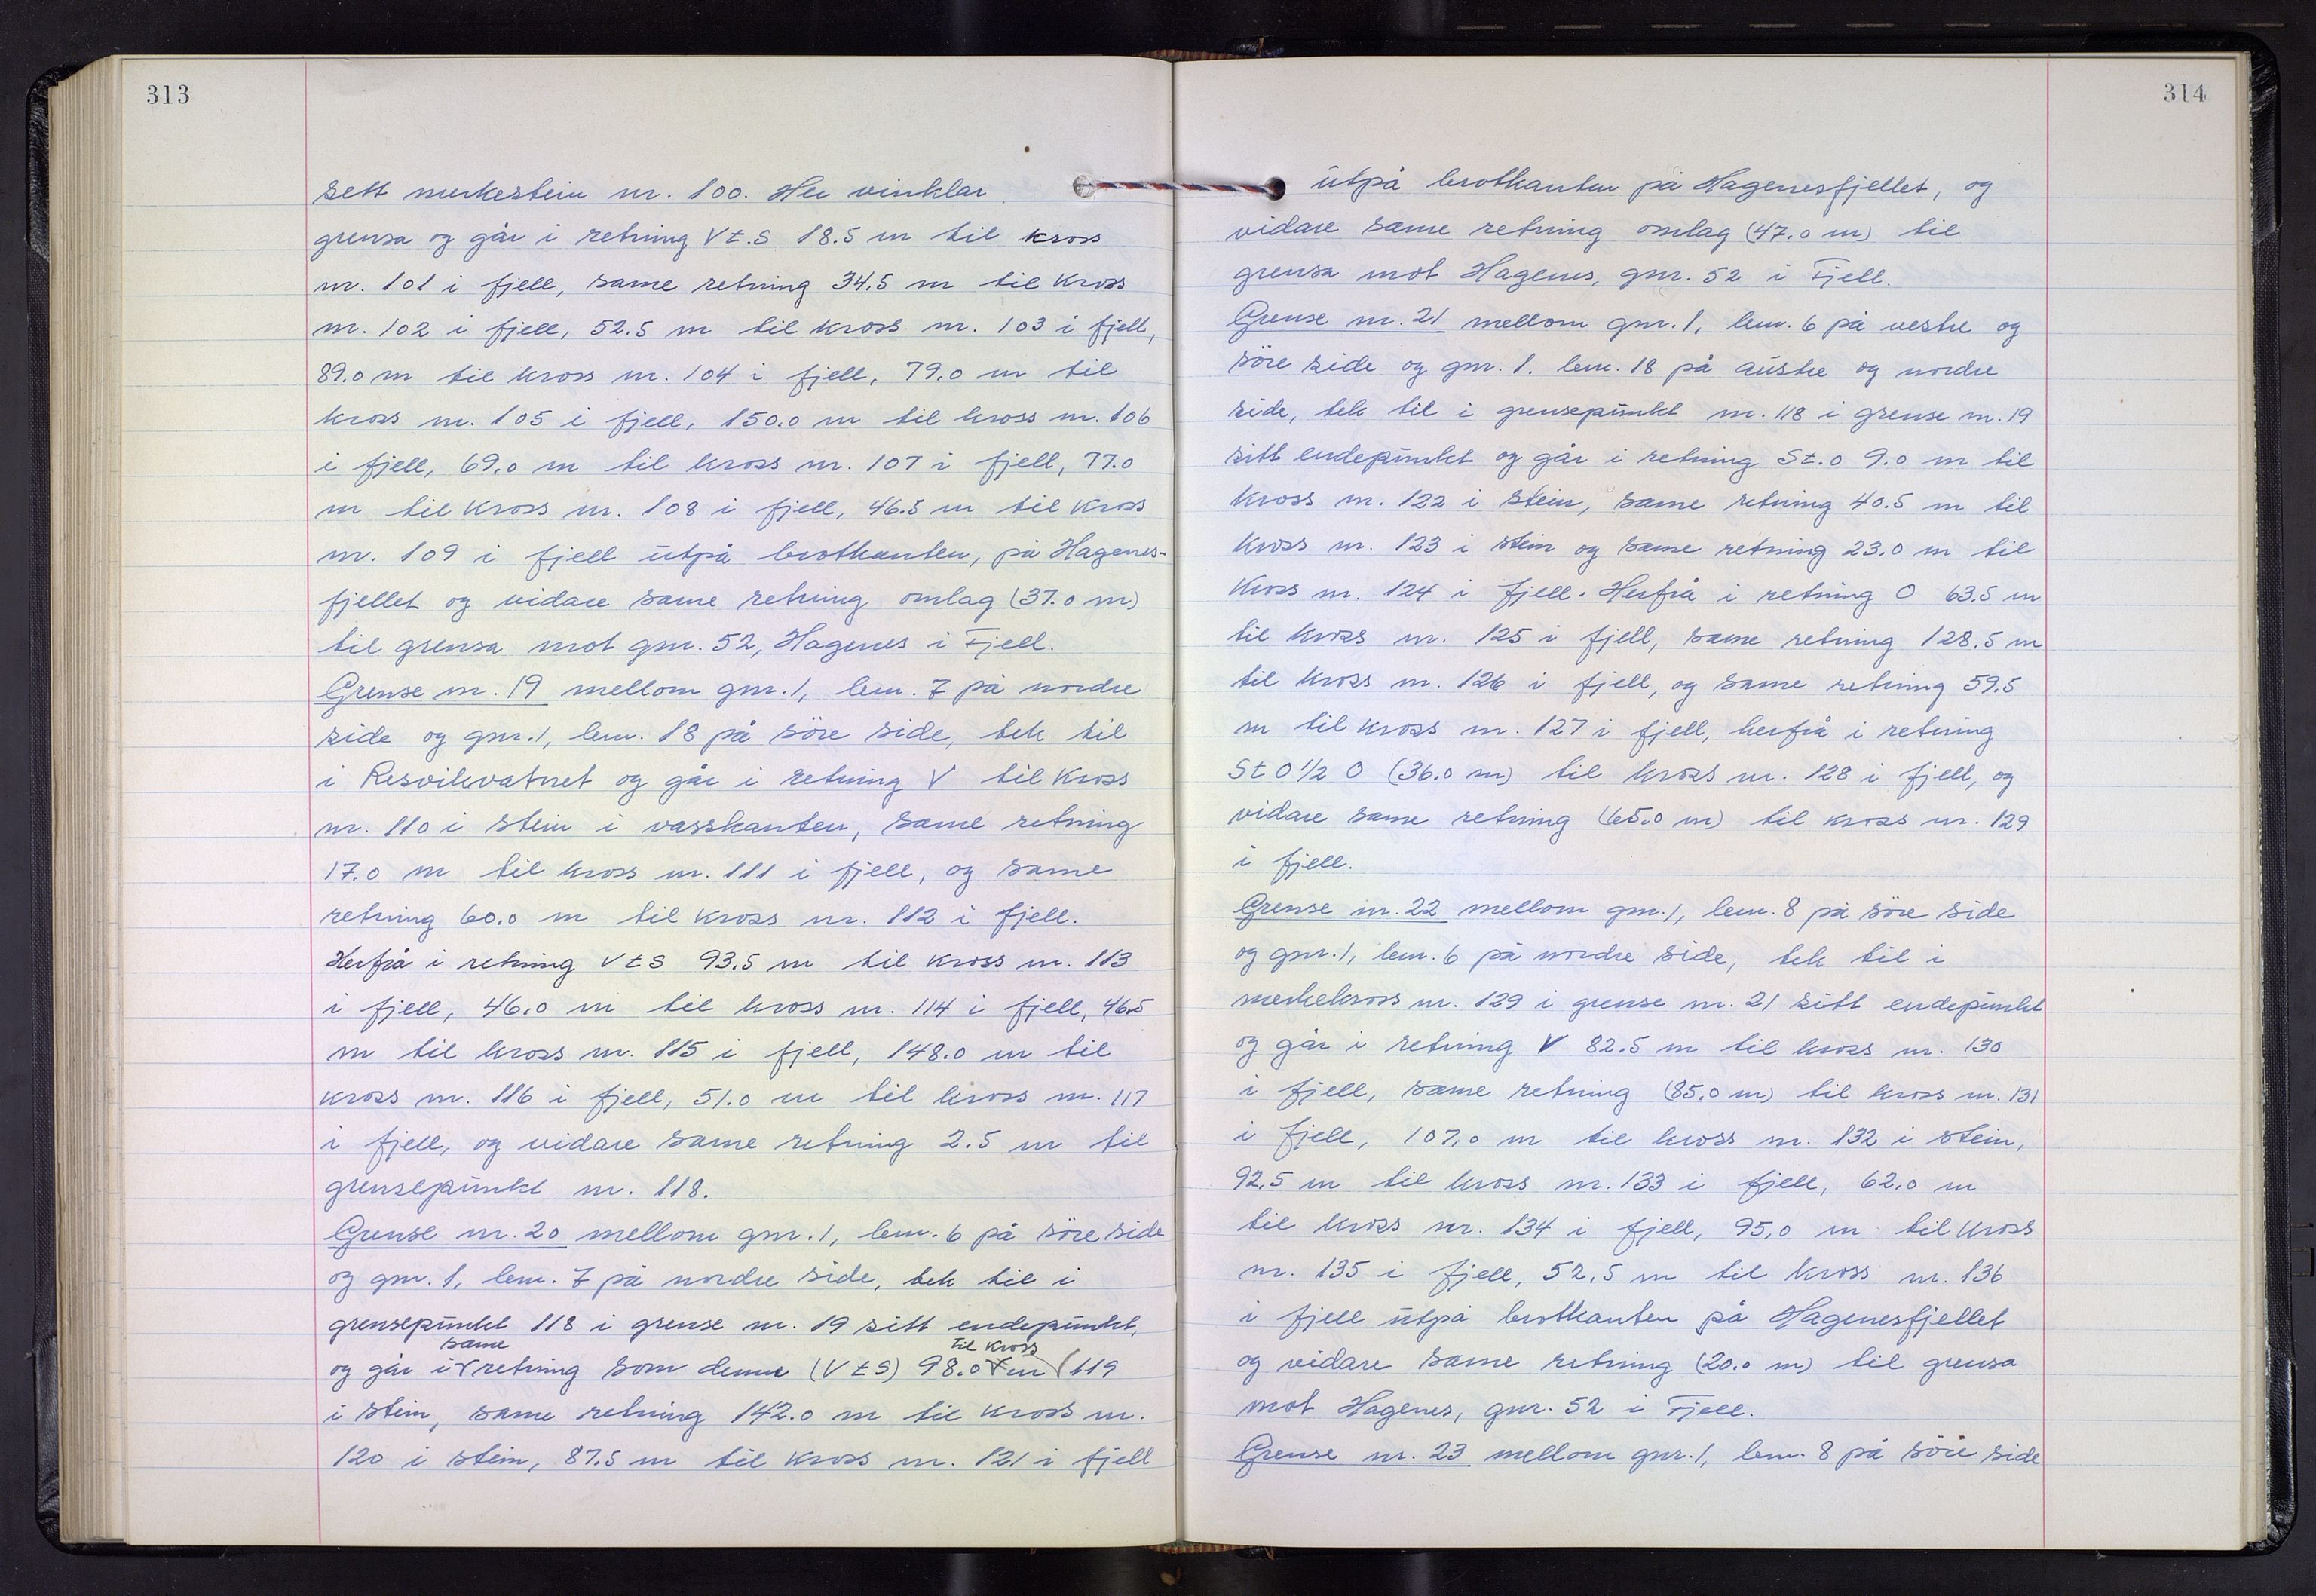 313
sett merkestein nr. 100. Her vinklar
grensa og går i retning V t. S 18.5 m til kross
nr. 101 i fjell, same retning 34.5 m til kross
nr. 102 i fjell, 52.5 m til kross nr. 103 i fjell,
89.0 m til kross nr. 104 i fjell, 79.0 m til
kross nr. 105 i fjell, 150.0 m til kross nr. 106
i fjell, 69.0 m til kross nr. 107 i fjell, 77.0
m til kross nr. 108 i fjell, 46.5 m til kross
nr. 109 i fjell utpå brotkanten, på Hagenes-
fjellet og vidare same retning omlag (37.0 m)
til grensa mot gnr. 52, Hagenes i Fjell.
Grense nr. 19 mellom gnr. 1, lem. 7 på nordre
side og gnr. 1, lem. 18 på söre side, tek til
i Resvikvatnet og går i retning V til kross
nr. 110 i stein i vasskanten, same retning
17.0 m til kross nr. 111 i fjell, og same
retning 60.0 m til kross nr. 112 i fjell.
Herfrå i retning V t S 93.5 m til kross nr. 113
i fjell, 46.0 m til kross nr. 114 i fjell, 46.5
m til kross nr. 115 i fjell, 148.0 m til
kross nr. 116 i fjell, 51.0 m til kross nr. 117
i fjell, og vidare same retning 2.5 m til
grensepunkt nr. 118.
Grense nr. 20 mellom gnr. 1, lem. 6 på söre side
og gnr. 1, lem. 7 på nordre side, tek til i
grensepunkt 118 i grense nr. 19 sitt endepunkt,
same til kross
og går i retning som denne (V t S) 98.0 m 119
i stein, same retning 142.0 m til kross nr.
120 i stein, 87.5 m til kross nr. 121 i fjell
314
utpå brotkanten på Hagenesfjellet, og
vidare same retning omlag (47.0 m) til
grensa mot Hagenes, gnr. 52 i Fjell.
Grense nr. 21 mellom gnr. 1, lem. 6 på vestre og
söre side og gnr. 1. lem. 18 på austre og nordre
side, tek til i grensepunkt nr. 118 i grense nr. 19
sitt endepunkt og går i retning S t. O 9.0 m til
kross nr. 122 i stein, same retning 40.5 m til
kross nr. 123 i stein og same retning 23.0 m til
kross nr. 124 i fjell. Herfrå i retning O 63.5 m
til kross nr. 125 i fjell, same retning 128.5 m
til kross nr. 126 i fjell, og same retning 59.5
m til kross nr. 127 i fjell, herfrå i retning
S t O 1/2 O (36.0 m) til kross nr. 128 i fjell, og
vidare same retning (65.0 m) til kross nr. 129
i fjell.
Grense nr. 22 mellom gnr. 1, lem. 8 på söre side
og gnr. 1, lem. 6 på nordre side, tek til i
merkekross nr. 129 i grense nr. 21 sitt endepunkt
og går i retning V 82.5 m til kross nr. 130
i fjell, same retning (85.0 m) til kross nr. 131
i fjell, 107.0 m til kross nr. 132 i stein,
92.5 m til kross nr. 133 i fjell, 62.0 m
til kross nr. 134 i fjell, 95.0 m til kross
nr. 135 i fjell, 52.5 m til kross nr. 136
i fjell utpå brotkanten på Hagenesfjellet
og vidare same retning (20.0 m) til grensa
mot Hagenes, gnr. 52 i Fjell.
Grense nr. 23 mellom gnr. 1, lem. 8 på söre side